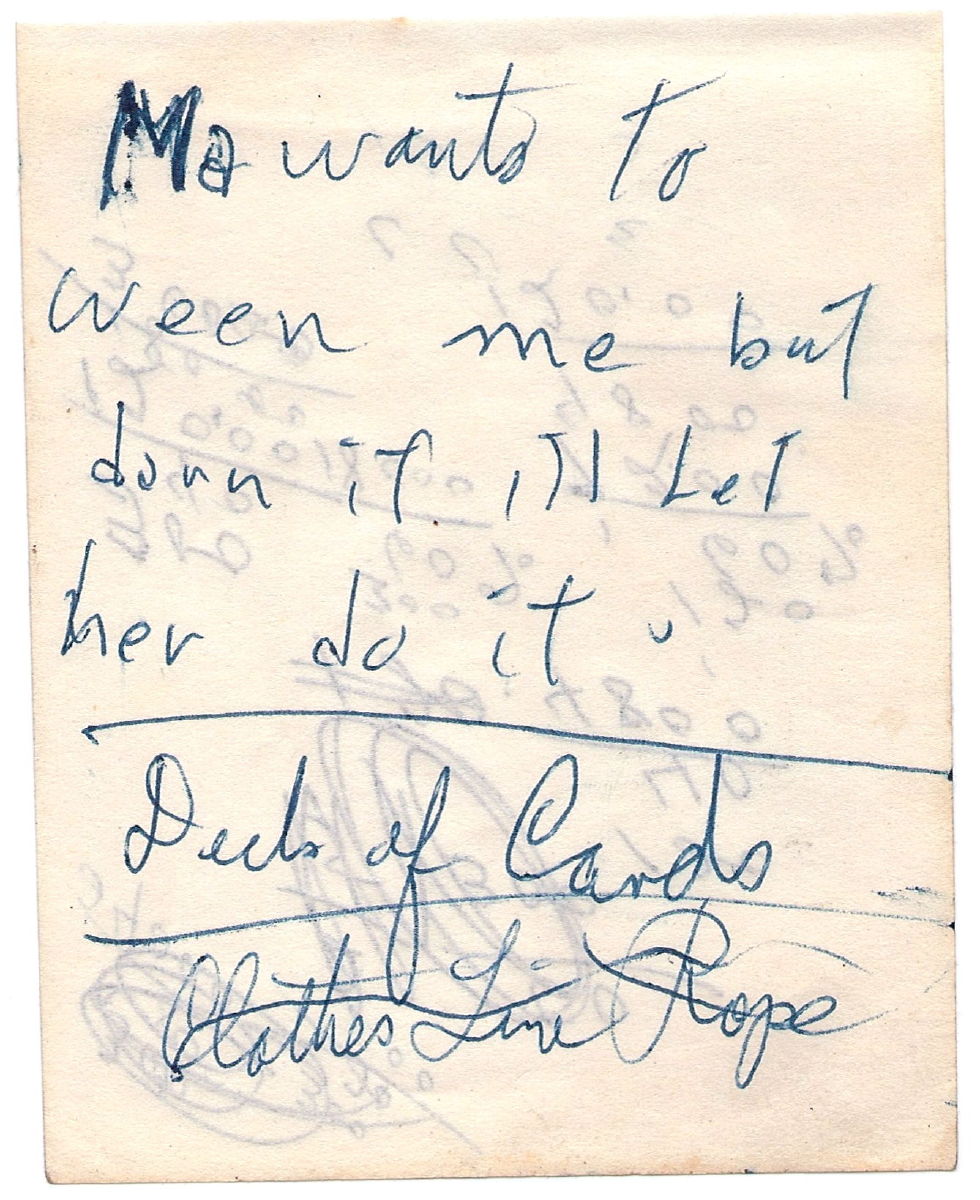 Ma wants to
ween me but
dorn it i'll Let
her do it.
Deck of Cards
Clothes Line Rope